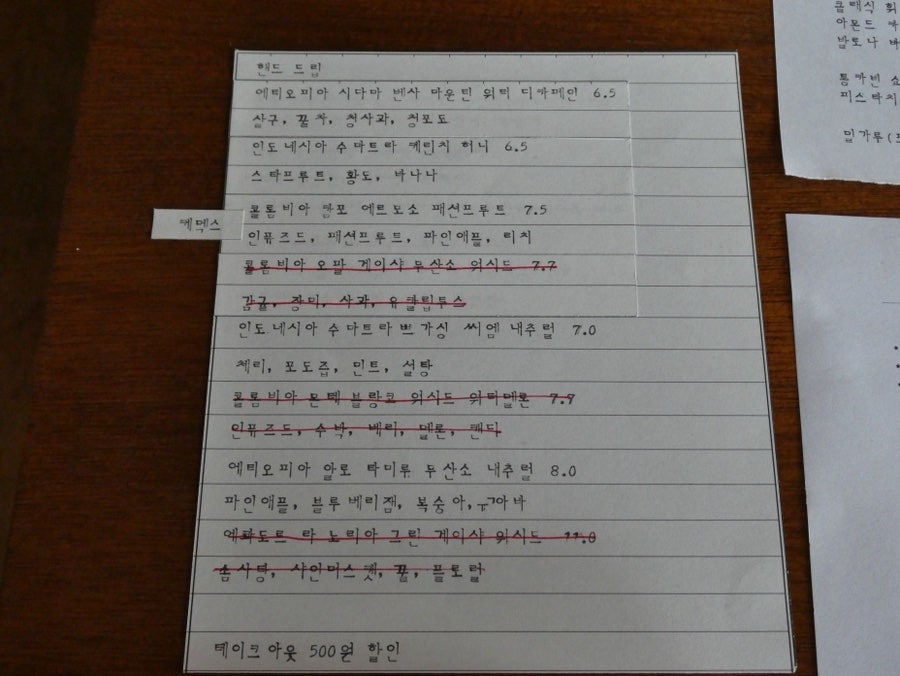 핸드 드립
에티오피아 시다마 벤사 마운틴 워터 디카페인 6.5
살구, 꿀차, 청사과, 청포도
인도네시아 수마트라 케린치 허니 6.5
스타프루트, 황도, 바나나
콜롬비아 람포 에르모소 패션프루트 7.5
케멕스
인퓨즈드, 패션프루트, 파인애플, 리치
콜롬비아 오팔 게이샤 무산소 워시드 7.7
감귤, 장미, 사과, 유칼립투스
인도네시아 수마트라 쁘가싱 씨엠 내추럴 7.0
체리, 포도즙, 민트, 설탕
콜롬비아 몬테 블랑코 워시드 워터멜론 7.7
인퓨즈드, 수박, 베리, 멜론, 캔디
에티오피아 알로 타미루 무산소 내추럴 8.0
파인애플, 블루베리잼, 복숭아, 구아바
에콰도르 라 노리아 그린 게이샤 워시드 11.0
솜사탕, 샤인머스켓, 꿀, 플로럴
테이크아웃 500원 할인
클래식
아몬드
발로나
통카빈
피스타치
밀가루(